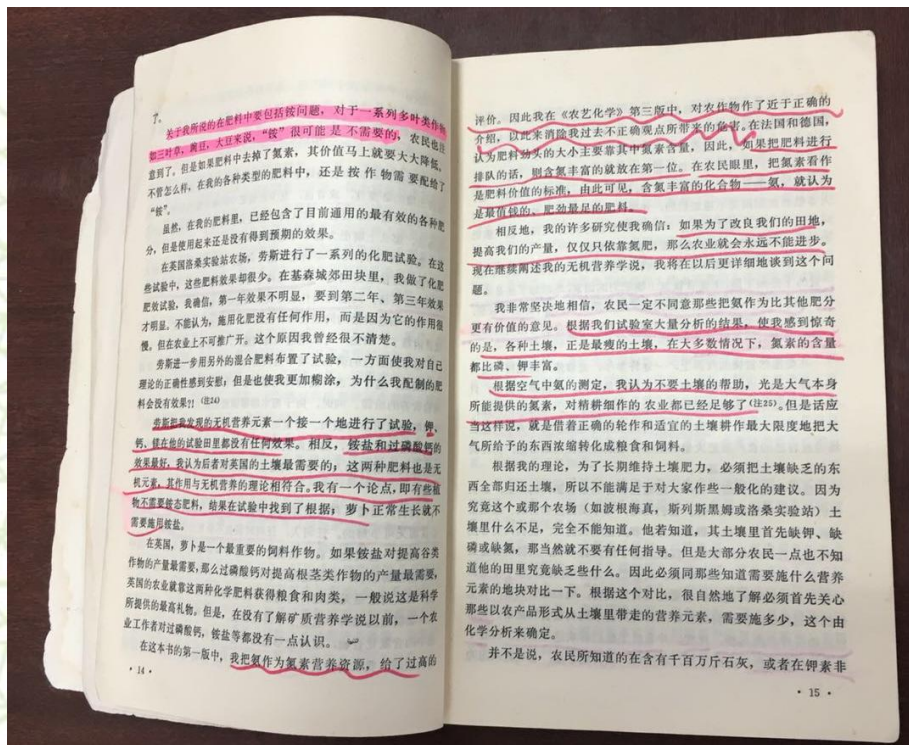 了。
关于我所说的在肥料中要包括铵问题，对于一系列多叶类作物
如三叶草，豌豆，大豆来说，“铵”很可能是不需要的，农民也注
意到了。但是如果肥料中去掉了氮素，其价值马上就要大大降低。
不管怎么样，在我的各种类型的肥料中，还是按作物需要配给了
“铵”。
虽然，在我的肥料里，已经包含了目前通用的最有效的各种肥
分，但是使用起来还是没有得到预期的效果。
在英国洛桑实验站农场，劳斯进行了一系列的化肥试验。在这
些试验中，这些肥料效果却很少。在基森城郊田块里，我做了化肥
肥效试验，我确信，第一年效果不明显，要到第二年、第三年效果
才明显。不能认为，施用化肥没有任何作用，而是因为它的作用很
慢。但在农业上不可推广开。这个原因我曾经很不清楚。
劳斯进一步用另外的混合肥料布置了试验，一方面使我对自己
理论的正确性感到安慰，但是也使我更加糊涂，为什么我配制的肥
料会没有效果?! (注24)
劳斯把我发现的无机营养元素一个接一个地进行了试验，钾、
钙、镁在他的试验田里都没有任何效果。相反，铵盐和过磷酸钙的
效果最好，我认为后者对英国的土壤最需要的；这两种肥料也是无
机元素，其作用与无机营养的理论相符合。我有一个论点，即有些植
物不需要铵态肥料，结果在试验中找到了根据；萝卜正常生长就不
需要施用铵盐。
在英国，萝卜是一个最重要的饲料作物。如果铵盐对提高谷类
作物的产量最需要，那么过磷酸钙对提高根茎类作物的产量最需要，
英国的农业就靠这两种化学肥料获得粮食和肉类，一般说这是科学
所提供的最高礼物。但是，在没有了解矿质营养学说以前，一个农
业工作者对过磷酸钙，铵盐等都没有一点认识。
在这本书的第一版中，我把氨作为氮素营养资源，给了过高的
· 14 ·
评价。因此我在《农艺化学》第三版中，对农作物作了近于正确的
介绍，以此来消除我过去不正确观点所带来的危害。在法国和德国，
认为肥料劲头的大小主要靠其中氮素含量，因此，如果把肥料进行
排队的话，则含氮丰富的就放在第一位。在农民眼里，把氮素看作
是肥料价值的标准，由此可见，含氮丰富的化合物——氨，就认为
是最值钱的、肥劲最足的肥料。
相反地，我的许多研究使我确信：如果为了改良我们的田地，
提高我们的产量，仅仅只依靠氮肥，那么农业就会永远不能进步。
现在继续阐述我的无机营养学说，我将在以后更详细地谈到这个问
题。
我非常坚决地相信，农民一定不同意那些把氨作为比其他肥分
更有价值的意见。根据我们试验室大量分析的结果，使我感到惊奇
的是，各种土壤，正是最瘦的土壤，在大多数情况下，氮素的含量
都比磷、钾丰富。
根据空气中氨的测定，我认为不要土壤的帮助，光是大气本身
所能提供的氮素，对精耕细作的农业都已经足够了(注25)。但是话应
当这样说，就是借着正确的轮作和适宜的土壤耕作最大限度地把大
气所给予的东西浓缩转化成粮食和饲料。
根据我的理论，为了长期维持土壤肥力，必须把土壤缺乏的东
西全部归还土壤，所以不能满足于对大家作些一般化的建议。因为
究竟这个或那个农场（如波根海真，斯列斯黑姆或洛桑实验站）土
壤里什么不足，完全不能知道。他若知道，其土壤里首先缺钾、缺
磷或缺氮，那当然就不要有任何指导。但是大部分农民一点也不知
道他的田里究竟缺乏些什么。因此必须同那些知道需要施什么营养
元素的地块对比一下。根据这个对比，很自然地了解必须首先关心
那些以农产品形式从土壤里带走的营养元素，需要施多少，这个由
化学分析来确定。
并不是说，农民所知道的在含有千百万斤石灰，或者在钾素非
· 15 ·